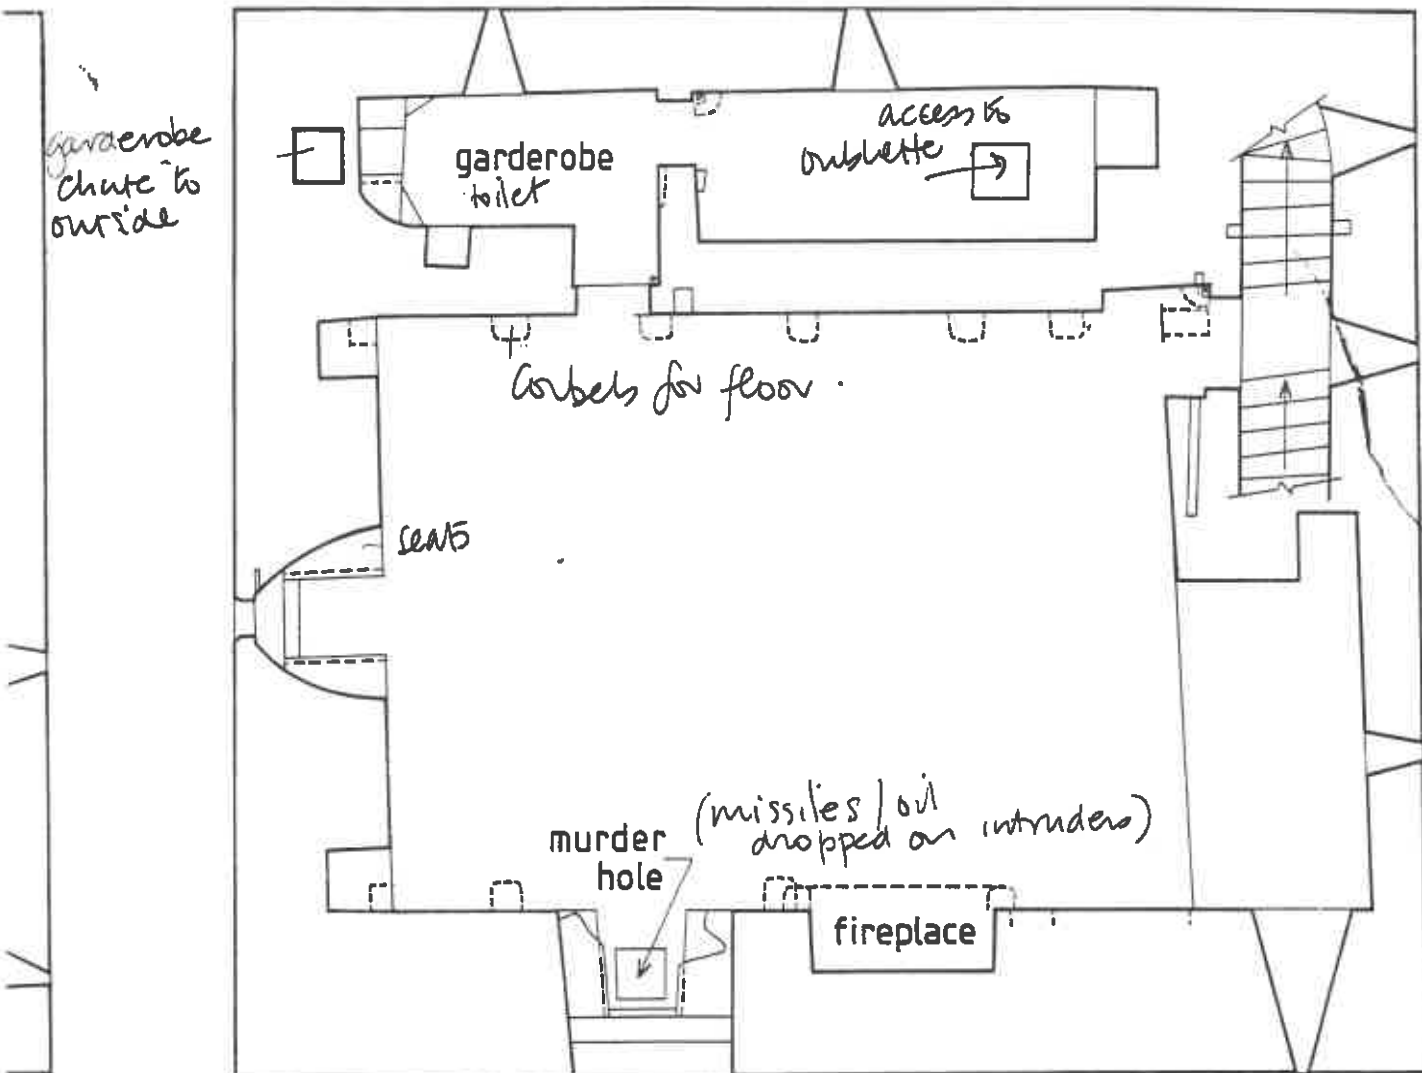 garderobe
chute to
outside
garderobe
toilet
access to
oubliette
Corbels for floor.
seats
murder
hole
(missiles / oil
dropped on intruders)
fireplace